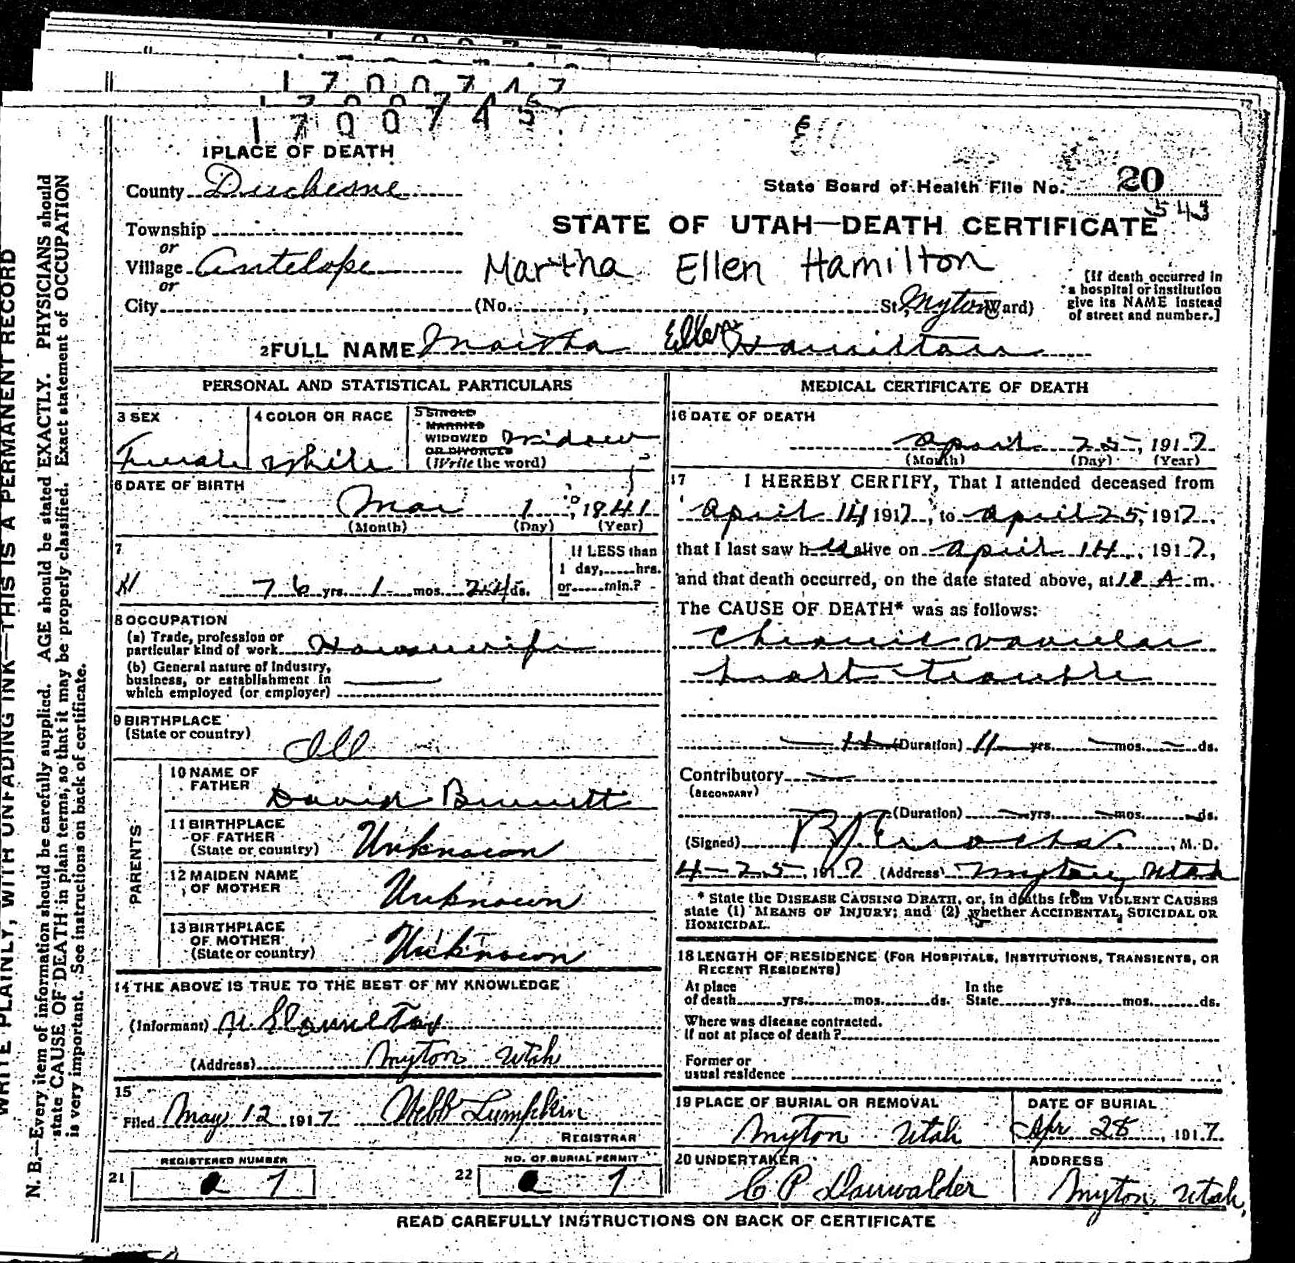 1700747
1700745
1 PLACE OF DEATH
County Duchesne
State Board of Health File No. 20
543
Township
or
STATE OF UTAH—DEATH CERTIFICATE
Village Antelope
or
Martha Ellen Hamilton
City (No. , St. Myton Ward)
[If death occurred in
a hospital or institution
give its NAME instead
of street and number.]
2 FULL NAME Martha Ellen Hamilton
PERSONAL AND STATISTICAL PARTICULARS
3 SEX
Female
4 COLOR OR RACE
White
5 SINGLE
MARRIED
WIDOWED
OR DIVORCED
(Write the word)
Widow
6 DATE OF BIRTH
Mar 1, 1841
(Month) (Day) (Year)
7
76 yrs. 1 mos. 24 ds.
If LESS than
1 day, hrs.
or min.?
8 OCCUPATION
(a) Trade, profession or
particular kind of work Housewife
(b) General nature of industry,
business, or establishment in
which employed (or employer)
9 BIRTHPLACE
(State or country)
Ill
PARENTS
10 NAME OF
FATHER
David Bennett
11 BIRTHPLACE
OF FATHER
(State or country)
Unknown
12 MAIDEN NAME
OF MOTHER
Unknown
13 BIRTHPLACE
OF MOTHER
(State or country)
Unknown
14 THE ABOVE IS TRUE TO THE BEST OF MY KNOWLEDGE
(Informant) Hamilton
(Address) Myton Utah
15
Filed May 12 1917 Webb Lumpkin
REGISTRAR
21 REGISTERED NUMBER
7
22 NO. OF BURIAL PERMIT
7
MEDICAL CERTIFICATE OF DEATH
16 DATE OF DEATH
April 25, 1917
(Month) (Day) (Year)
17 I HEREBY CERTIFY, That I attended deceased from
April 14 1917, to April 25, 1917,
that I last saw her alive on April 14, 1917,
and that death occurred, on the date stated above, at 12 A m.
The CAUSE OF DEATH* was as follows:
Chronic
heart trouble
(Duration) 11 yrs. mos. ds.
Contributory
(SECONDARY)
(Duration) yrs. mos. ds.
(Signed) , M. D.
4-25, 1917 (Address) Myton, Utah
* State the DISEASE CAUSING DEATH, or, in deaths from VIOLENT CAUSES
state (1) MEANS OF INJURY; and (2) whether ACCIDENTAL, SUICIDAL OR
HOMICIDAL.
18 LENGTH OF RESIDENCE (FOR HOSPITALS, INSTITUTIONS, TRANSIENTS, OR
RECENT RESIDENTS)
At place
of death yrs. mos. ds.
In the
State yrs. mos. ds.
Where was disease contracted.
If not at place of death?
Former or
usual residence
19 PLACE OF BURIAL OR REMOVAL
Myton Utah
DATE OF BURIAL
Apr 28, 1917.
20 UNDERTAKER
C P Danwalder
ADDRESS
Myton, Utah,
READ CAREFULLY INSTRUCTIONS ON BACK OF CERTIFICATE
WRITE PLAINLY, WITH UNFADING INK—THIS IS A PERMANENT RECORD
N. B.—Every item of information should be carefully supplied. AGE should be stated EXACTLY. PHYSICIANS should
state CAUSE OF DEATH in plain terms, so that it may be properly classified. Exact statement of OCCUPATION
is very important. See instructions on back of certificate.